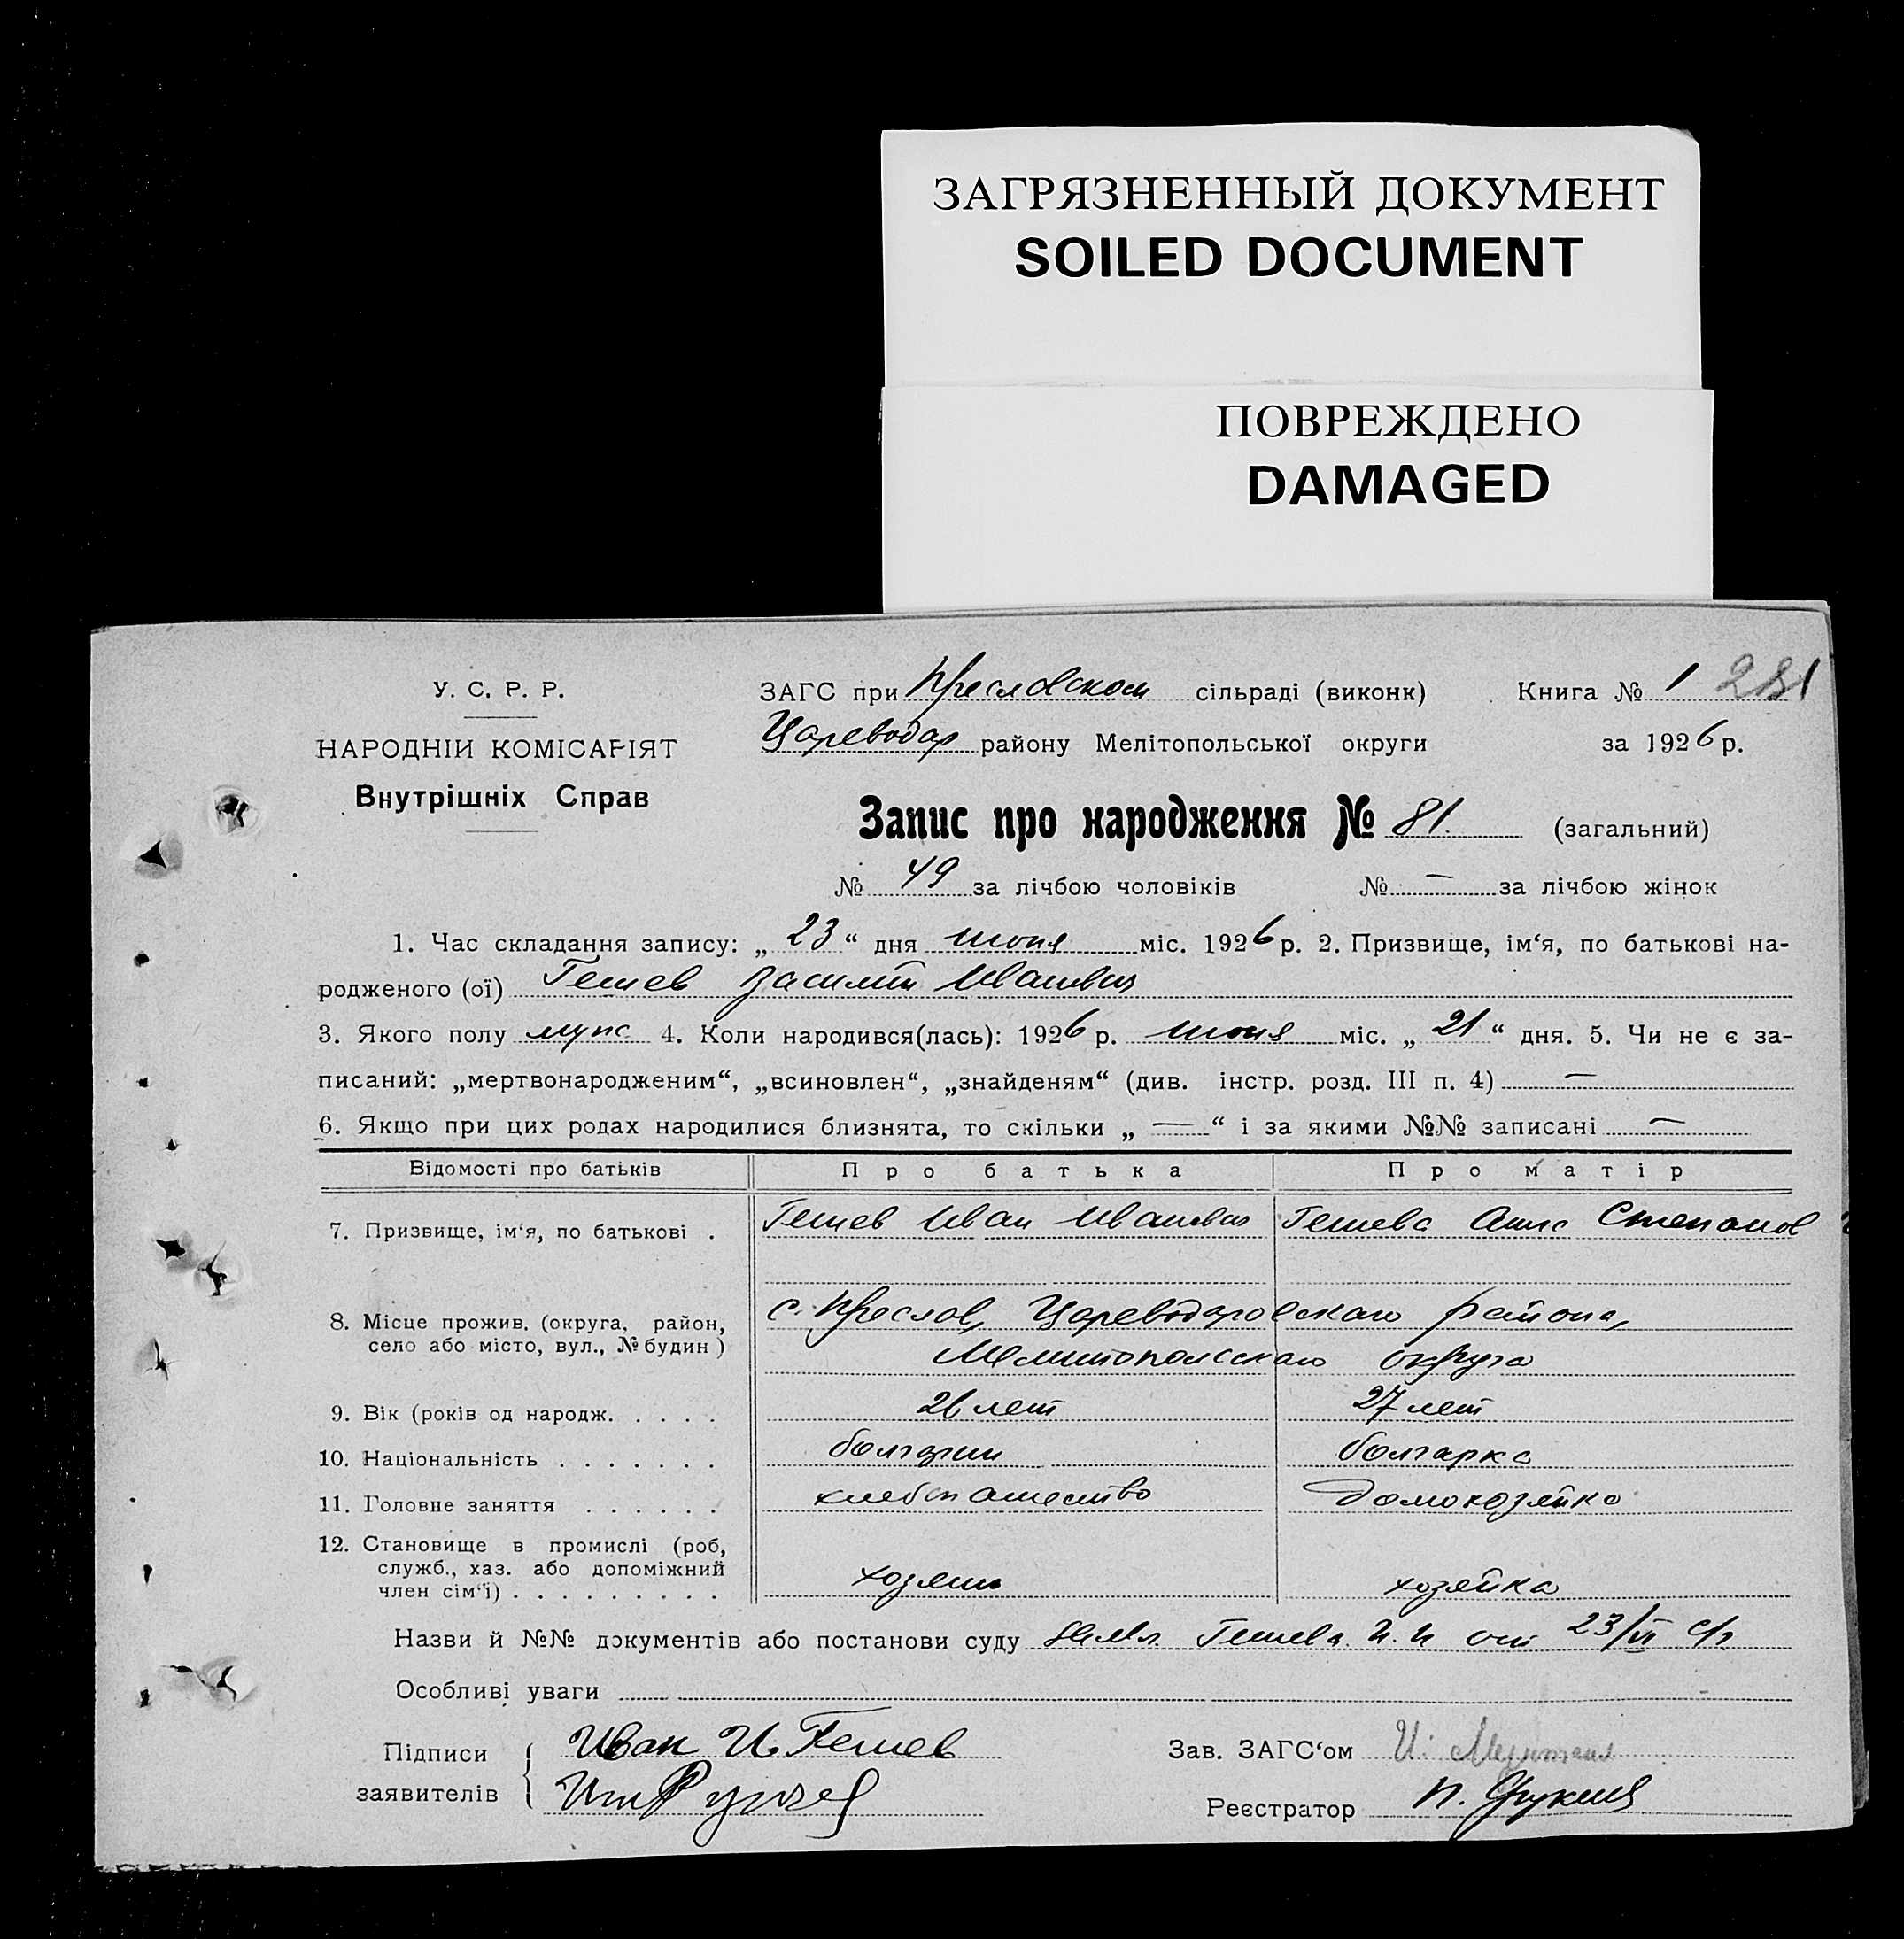 ЗАГРЯЗНЕННЫЙ ДОКУМЕНТ
SOILED DOCUMENT
ПОВРЕЖДЕНО
DAMAGED
У. С. Р. Р.
НАРОДНІЙ КОМІСАРІЯТ
Внутрішніх Справ
ЗАГС при Преславском сільраді (виконк) Книга № 1 281
Цареводар району Мелітопольської округи за 1926 р.
Запис про народження № 81. (загальний)
№ 49 за лічбою чоловіків № — за лічбою жінок
1. Час складання запису: „ 23 “ дня июня міс. 1926 р. 2. Призвище, ім‘я, по батькові на-
родженого (ої) Гешев Василий Иванович
3. Якого полу мужс 4. Коли народився(лась): 1926 р. июня міс. „ 21 “ дня. 5. Чи не є за-
писаний: „мертвонародженим“, „всиновлен“, „знайденям“ (див. інстр. розд. III п. 4) —
6. Якщо при цих родах народилися близнята, то скільки „ — “ і за якими №№ записані —
Відомості про батьків Про батька Про матір
7. Призвище, ім‘я, по батькові . Гешев Иван Иванович Гешева Анна Степанов
8. Місце прожив. (округа, район, с. Преслав, Цареводаровскаго района,
село або місто, вул., № будин ) Мелитопольскаго округа
9. Вік (років од народж. . . . . 26 лет 27 лет
10. Національність . . . . . . . болгарин болгарка
11. Головне заняття . . . . . . хлебопашество домохозяйка
12. Становище в промислі (роб,
служб., хаз. або допоміжний
член сім‘ї) . . . . . . . . . хозяин хозяйка
Назви й №№ документів або постанови суду Гешева И. И от 23/VI с/г
Особливі уваги
Підписи Иван И. Гешев Зав. ЗАГС‘ом И.
заявителів Реєстратор П.